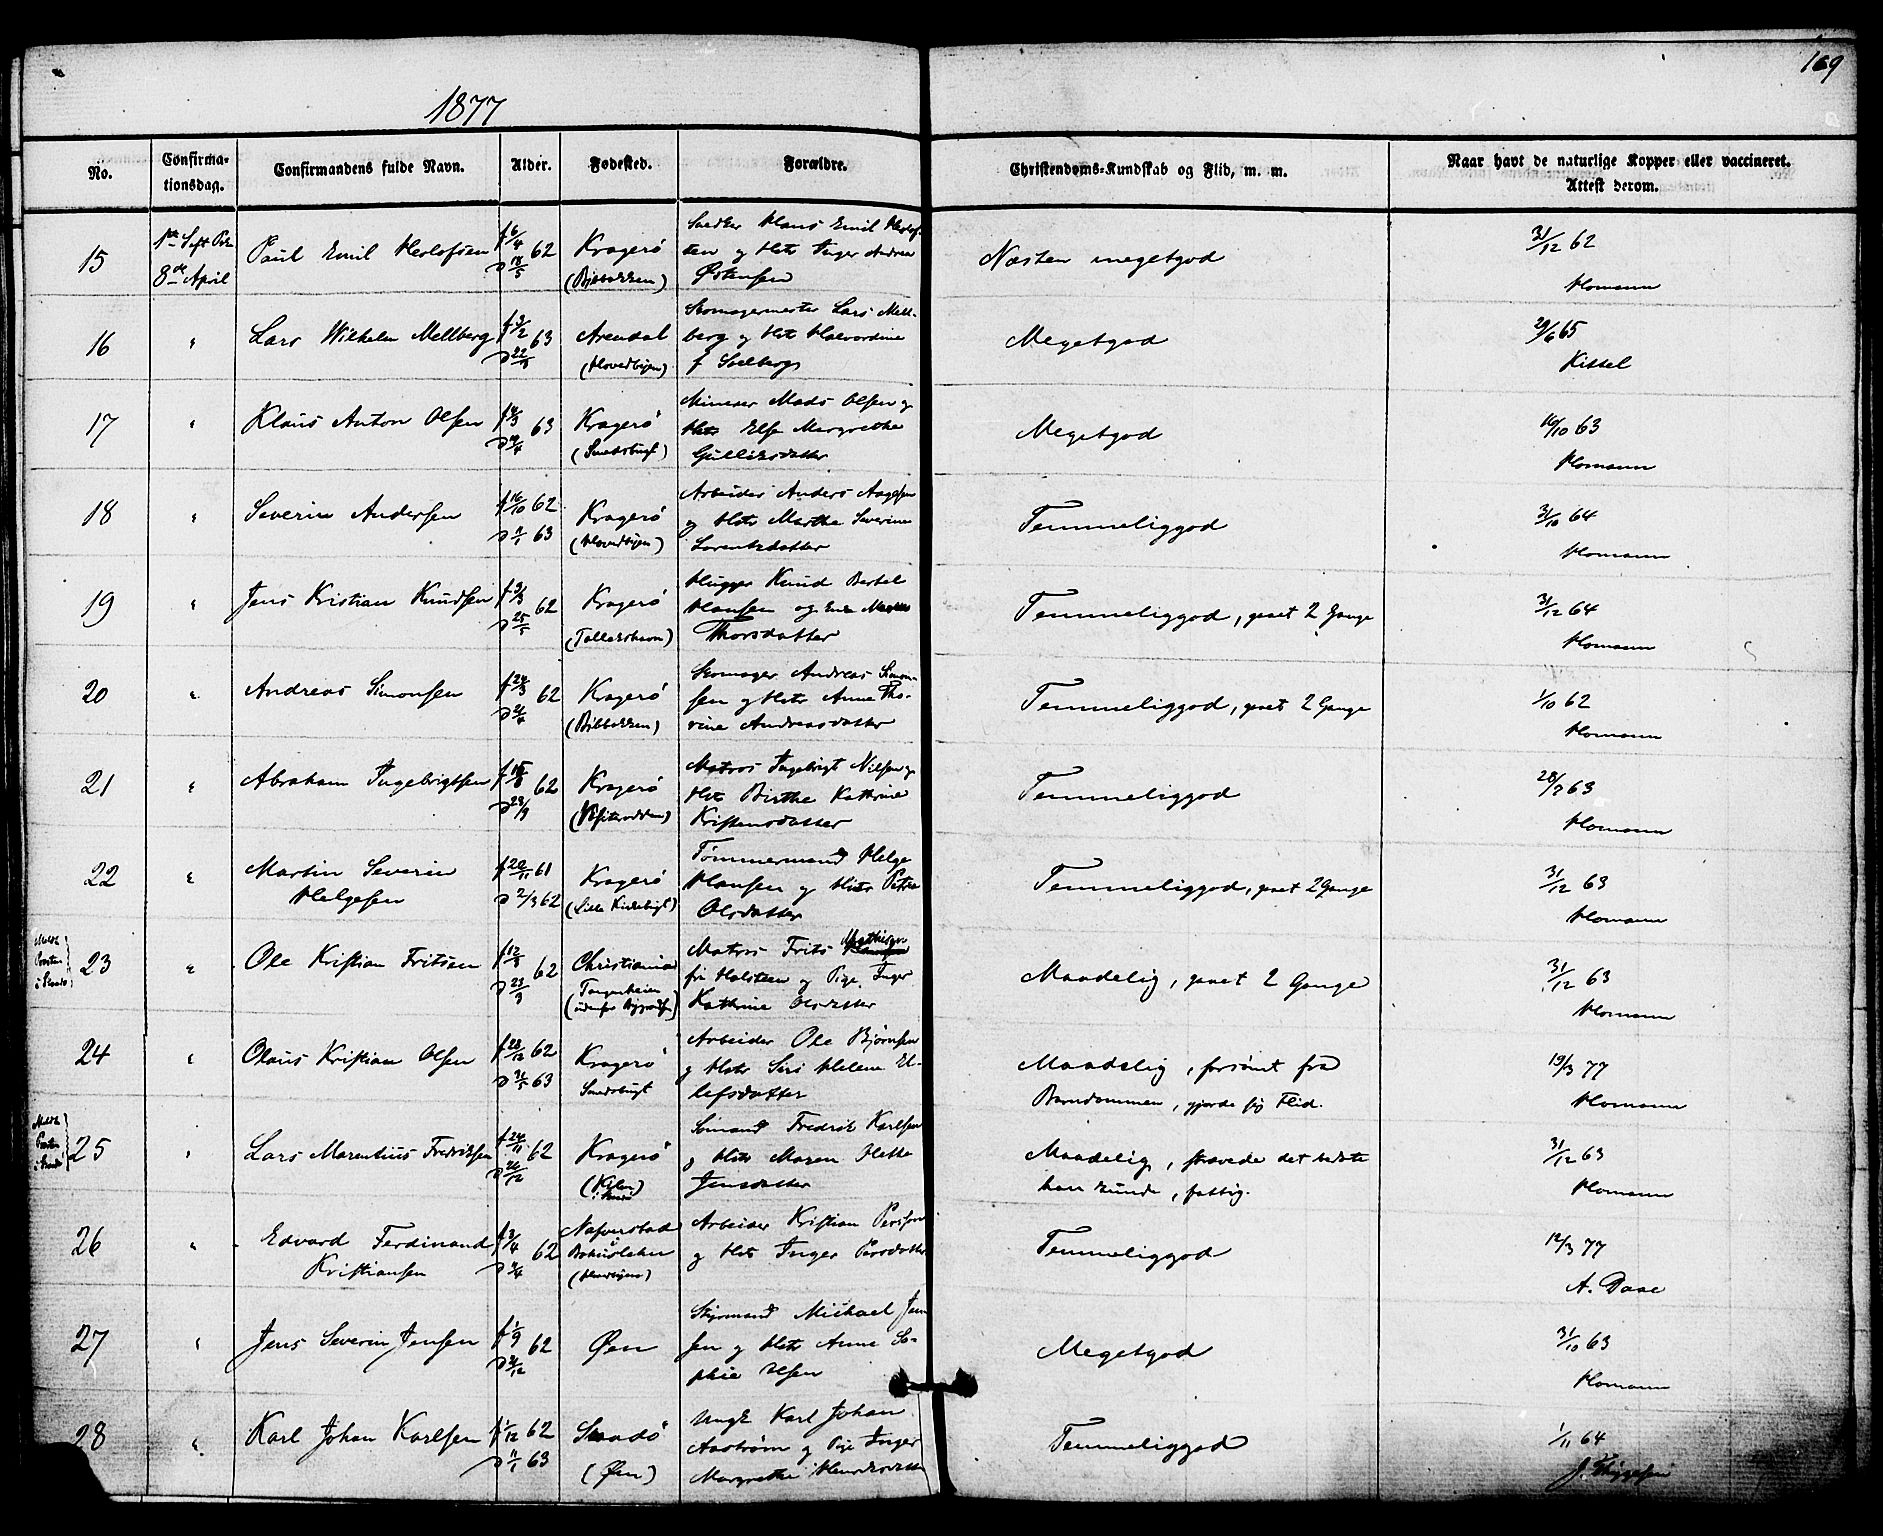 169
1877
No. Confirmationsdag. Confirmandens fulde Navn. Alder. Fødested. Forældre. Christendoms-Kundskab og Flid, m. m. Naar havt de naturlige Kopper eller vaccineret. Attest derom.
15 8de April Paul Emil Herlofsen f 6/4 62 d 18/5 Kragerö Hans Emil Herlof-
sen og Hstr Inger Andrea
Østensen Næsten megetgod 31/12 62 Homann
16 " Lars Wilhelm Mellberg 63 Arendal (Hovedbyen) Skomagermester Lars Mell-
berg og Hstr Halvordine
f Solberg Megetgod 29/6 65 Kittel
17 " Klaus Anton Olsen 63 Kragerö (Smedsbugt) Minerer Mads Olsen og
Hstr Else Margrethe
Gulliksdatter Megetgod 16/10 63 Homann
18 " Severin Andersen f 16/10 62 63 Kragerö (Hovedbyen) Arbeider Anders Aagesen
og Hstr Marthe Severine
Lorentsdatter Temmeliggod 31/10 64 Homann
19 " Jens Kristian Knudsen 62 d 25/5 Kragerö Hugger Knud Bertel
Hansen og
Thorsdatter Temmeliggod, gaaet 2 Gange 31/12 64 Homann
20 " Andreas Simonsen f 24/3 62 Kragerö Skomager Andreas Simon-
sen og Hstr Anne Tho-
rine Andreasdatter Temmeliggod, gaaet 2 Gange 1/10 62 Homann
21 " Abraham Ingebrigtsen 62 Kragerö Matros Ingebrigt Nilsen og
Hstr Birthe Kathrine
Kristensdatter Temmeliggod 28/7 63 Homann
22 " Martin Severin
Helgesen f 20/11 61 d 2/3 62 Kragerö (Lille Kirkebugt) Tømmermand Helge
Hansen og Hstr Petra
Olsdatter Temmeliggod, gaaet 2 Gange 31/12 63 Homann
23 " Ole Kristian Fritsen 62 Christiania Matros Frits Mathisen
fra Holsteen og Pige Inger
Kathrine Olsdatter Maadelig, gaaet 2 Gange 31/12 63 Homann
24 " Olaus Kristian Olsen f 28/12 62 63 Kragerö Smedsbugt Arbeider Ole Bjørnsen
og Hstr Siri Helene El-
lefsdatter Maadelig, forsömt fra
Barndommen, gjorde sig Flid. 19/3 77 Homann
25 " Lars Marentius Fredriksen f 24/11 62 d 26/12 Kragerö Sömand Fredrik Karlsen
og Hstr Maren Hette
Jensdatter Maadelig, strævede det bedste
han kunde, fattig. 31/12 63 Homann
26 " Edvard Ferdinand
Kristiansen 62 Nafverstad Bohuslehn (Hovedbyen) Arbeider Kristian Persson
og Hstr Inger Persdatter Temmeliggod 12/3 77 A. Daae
27 " Jens Severin Jensen f 1/9 62 Øen Styrmand Michael Jen-
sen og Hstr Anne So-
phie Olsen Megetgod 31/10 63 Homann
28 " Karl Johan Karlsen f 1/12 62 63 Skaadö (Øen) Ungk Karl Johan
Aaström og Pige Inger
Margrethe Henriksdatter Temmeliggod 1/11 64